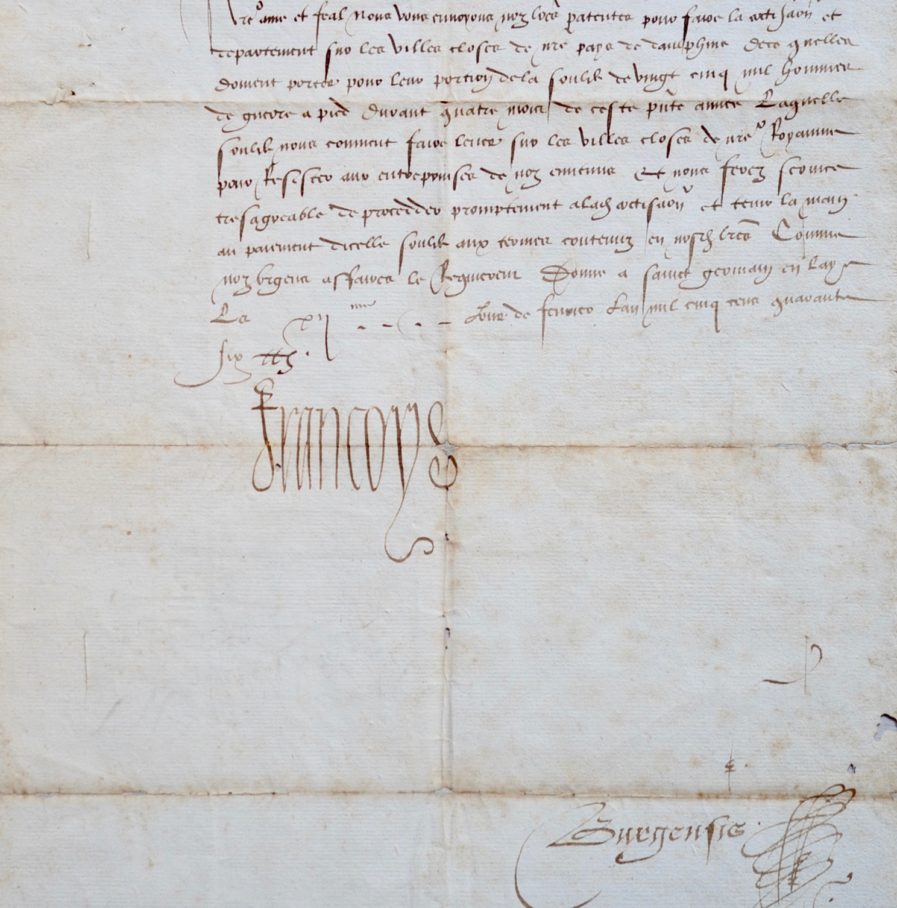 nre ame et feal Nous vous envoyons noz lres patentes pour faire la cottisaon et
departement sur les villes closes de nre pays de daulphine de ce quelles
doivent porter pour leur portion de la soulde de vingt cinq mil hommes
de guerre a pied durant quatre mois de ceste pnte annee Laquelle
soulde nous convient faire lever sur les villes closes de nre Royaume
pour Resister aux entreprinses de noz ennemis Et nous ferez service
tresagreable de proceddez promptement a lad cottisaon et tenir la main
au paiement dicelle soulde aux termes contenuz en nosd lres Comme
noz urgens affaires le Requierent Donne a sainct germain en laye
Le xij me Jour de fevrier Lan mil cinq cens quarante
six
Francoys
Burgensis